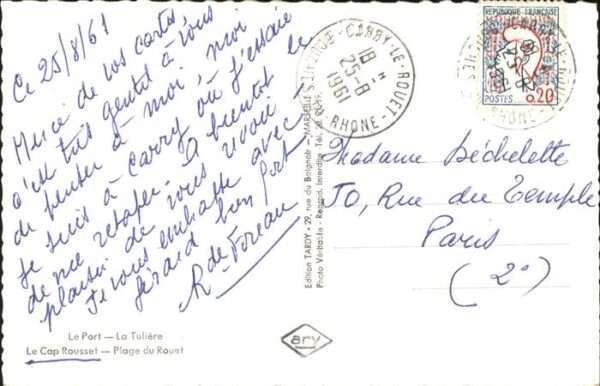 Ce 25/8/61
Merci de vos cartes
c'est très gentil à vous
de penser à moi, moi
je suis à Carry où j'essaie
de me retaper. A bientôt le
plaisir de vous revoir
Je vous embrasse avec
Gérard bien fort
R de Foreau
CARRY-LE-ROUET
BOUCHES-DU-RHONE
18 H
25-8
1961
REPUBLIQUE FRANÇAISE
POSTES 0,20
Madame Béchelette
50, Rue du Temple
Paris
(2°)
Edition TARDY • 29, rue du Baignoir - MARSEILLE
Photo Véritable - Reprod. Interdite
Le Port — La Tulière
Le Cap Rousset — Plage du Rouet
ary